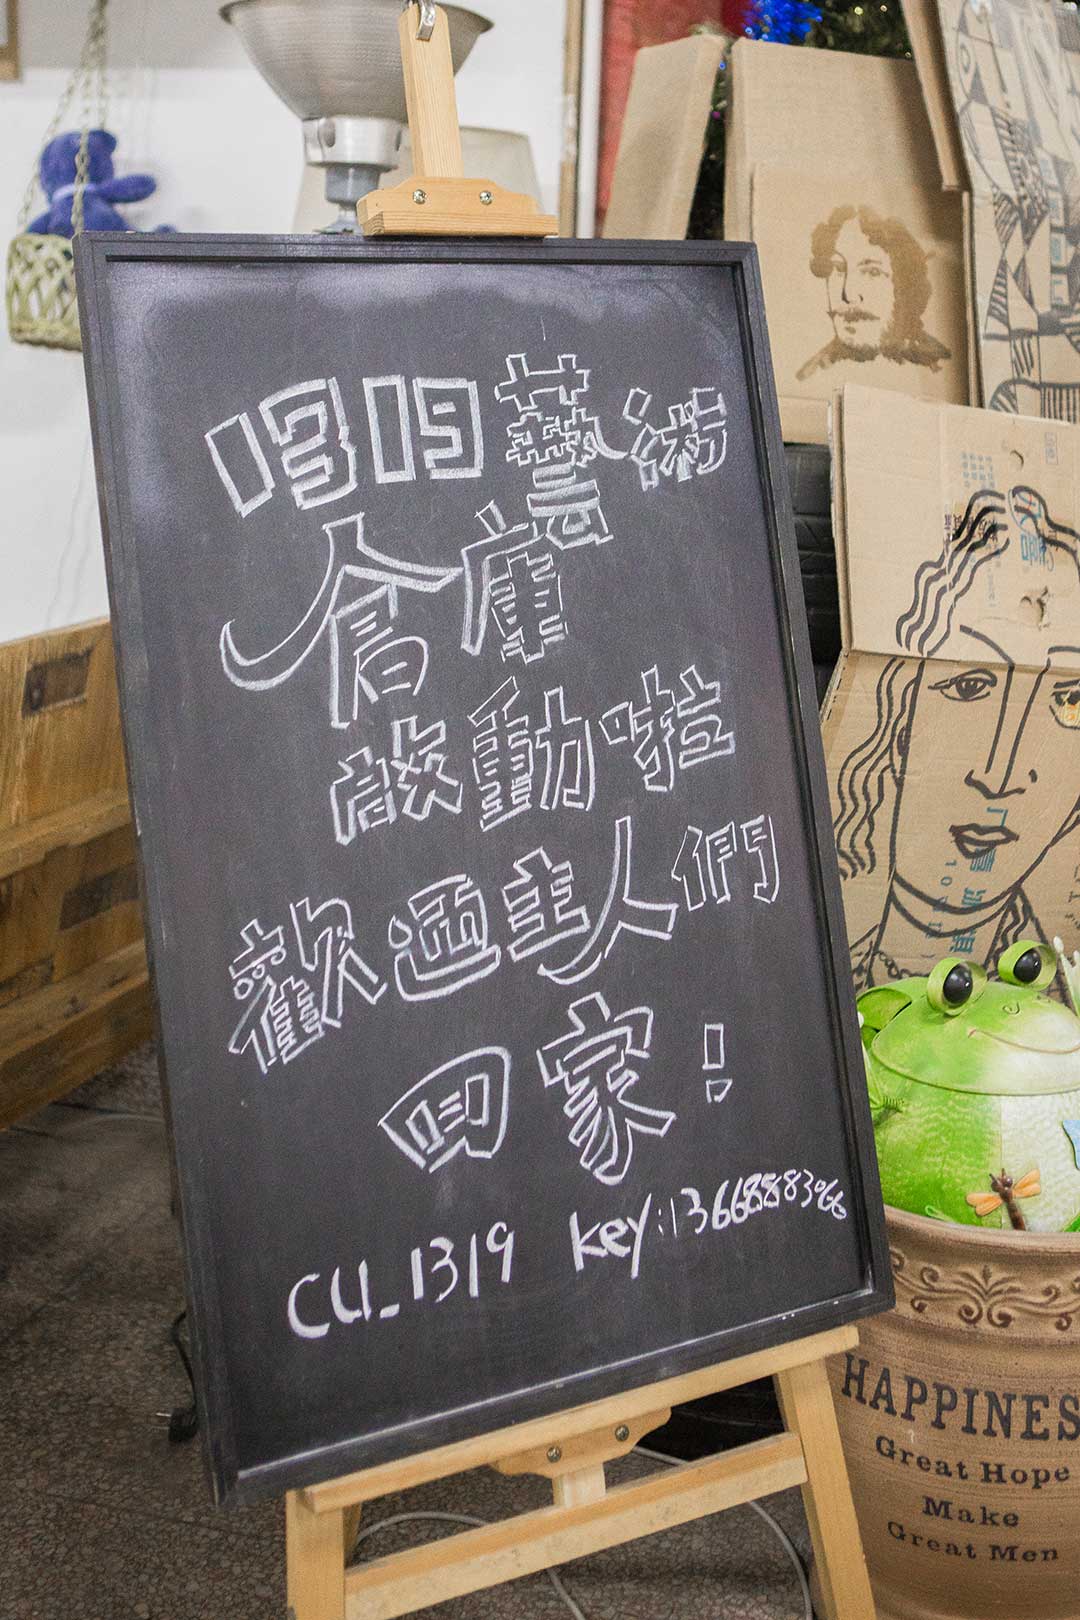 1319藝術
倉庫
啟動啦
歡過主人們
回家!
CU_1319 key:13668883066
HAPPINES
Great Hope
Make
Great Men